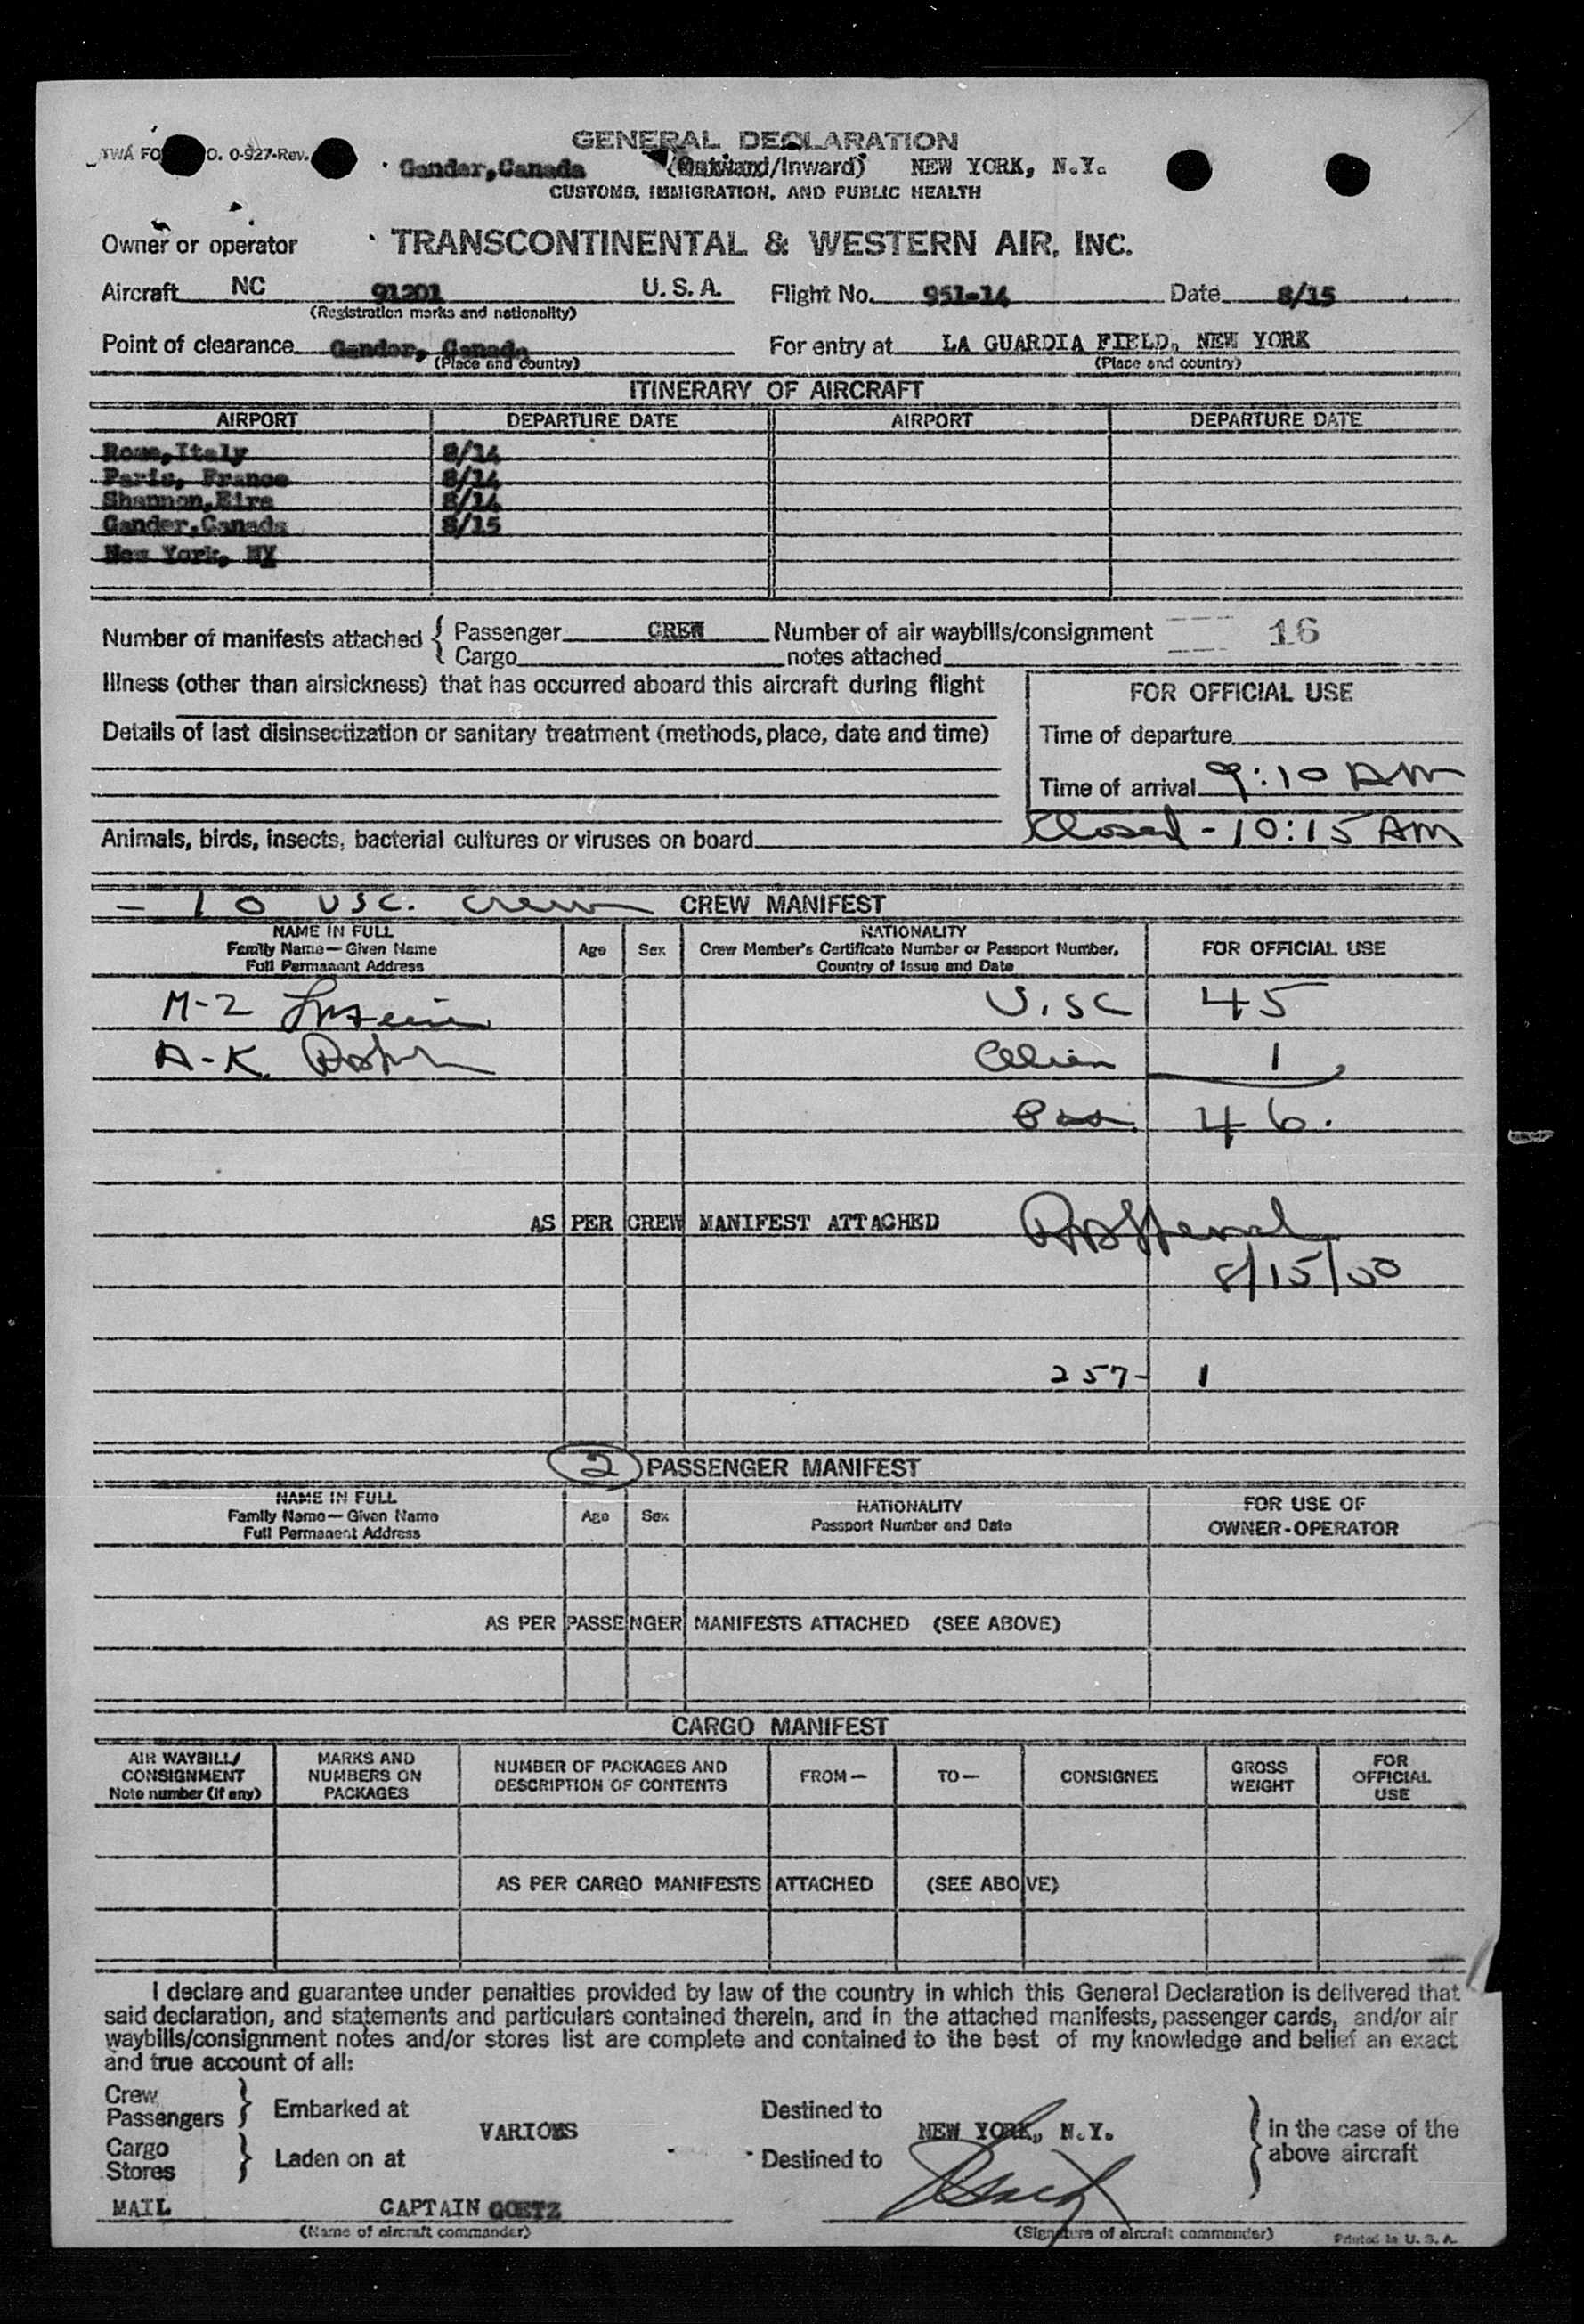 GENERAL DECLARATION
TWA FO O. 0-927-Rev.
Gander,Canada (Outward/Inward) NEW YORK, N.Y.
CUSTOMS, IMMIGRATION, AND PUBLIC HEALTH
Owner or operator TRANSCONTINENTAL & WESTERN AIR, INC.
Aircraft NC 91201 U.S.A. Flight No. 951-14 Date 8/15
(Registration marks and nationality)
Point of clearance Gander, Canada For entry at LA GUARDIA FIELD, NEW YORK
(Place and country) (Place and country)
ITINERARY OF AIRCRAFT
AIRPORT DEPARTURE DATE AIRPORT DEPARTURE DATE
Rome,Italy 8/14
Paris, France 8/14
Shannon,Eire 8/14
Gander,Canada 8/15
New York, NY
Number of manifests attached { Passenger CREW Number of air waybills/consignment 16
Cargo notes attached
Illness (other than airsickness) that has occurred aboard this aircraft during flight
FOR OFFICIAL USE
Details of last disinsectization or sanitary treatment (methods, place, date and time)
Time of departure
Time of arrival 9:10 AM
Closed - 10:15 AM
Animals, birds, insects, bacterial cultures or viruses on board
- 10 USC. Crew CREW MANIFEST
NAME IN FULL NATIONALITY
Family Name—Given Name Age Sex Crew Member's Certificate Number or Passport Number, FOR OFFICIAL USE
Full Permanent Address Country of Issue and Date
M-2 U.SC 45
A-K. Alien 1
Pass. 46.
AS PER CREW MANIFEST ATTACHED
8/15/50
257- 1
2 PASSENGER MANIFEST
NAME IN FULL NATIONALITY FOR USE OF
Family Name—Given Name Age Sex Passport Number and Date OWNER-OPERATOR
Full Permanent Address
AS PER PASSENGER MANIFESTS ATTACHED (SEE ABOVE)
CARGO MANIFEST
AIR WAYBILL/ MARKS AND NUMBER OF PACKAGES AND FROM— TO— CONSIGNEE GROSS FOR
CONSIGNMENT NUMBERS ON DESCRIPTION OF CONTENTS WEIGHT OFFICIAL
Note number (if any) PACKAGES USE
AS PER CARGO MANIFESTS ATTACHED (SEE ABOVE)
I declare and guarantee under penalties provided by law of the country in which this General Declaration is delivered that
said declaration, and statements and particulars contained therein, and in the attached manifests, passenger cards, and/or air
waybills/consignment notes and/or stores list are complete and contained to the best of my knowledge and belief an exact
and true account of all:
Crew
Passengers } Embarked at Destined to
VARIOUS NEW YORK, N.Y. } in the case of the
Cargo
Stores } Laden on at Destined to above aircraft
MAIL CAPTAIN GOETZ
(Name of aircraft commander) (Signature of aircraft commander) Printed in U. S. A.